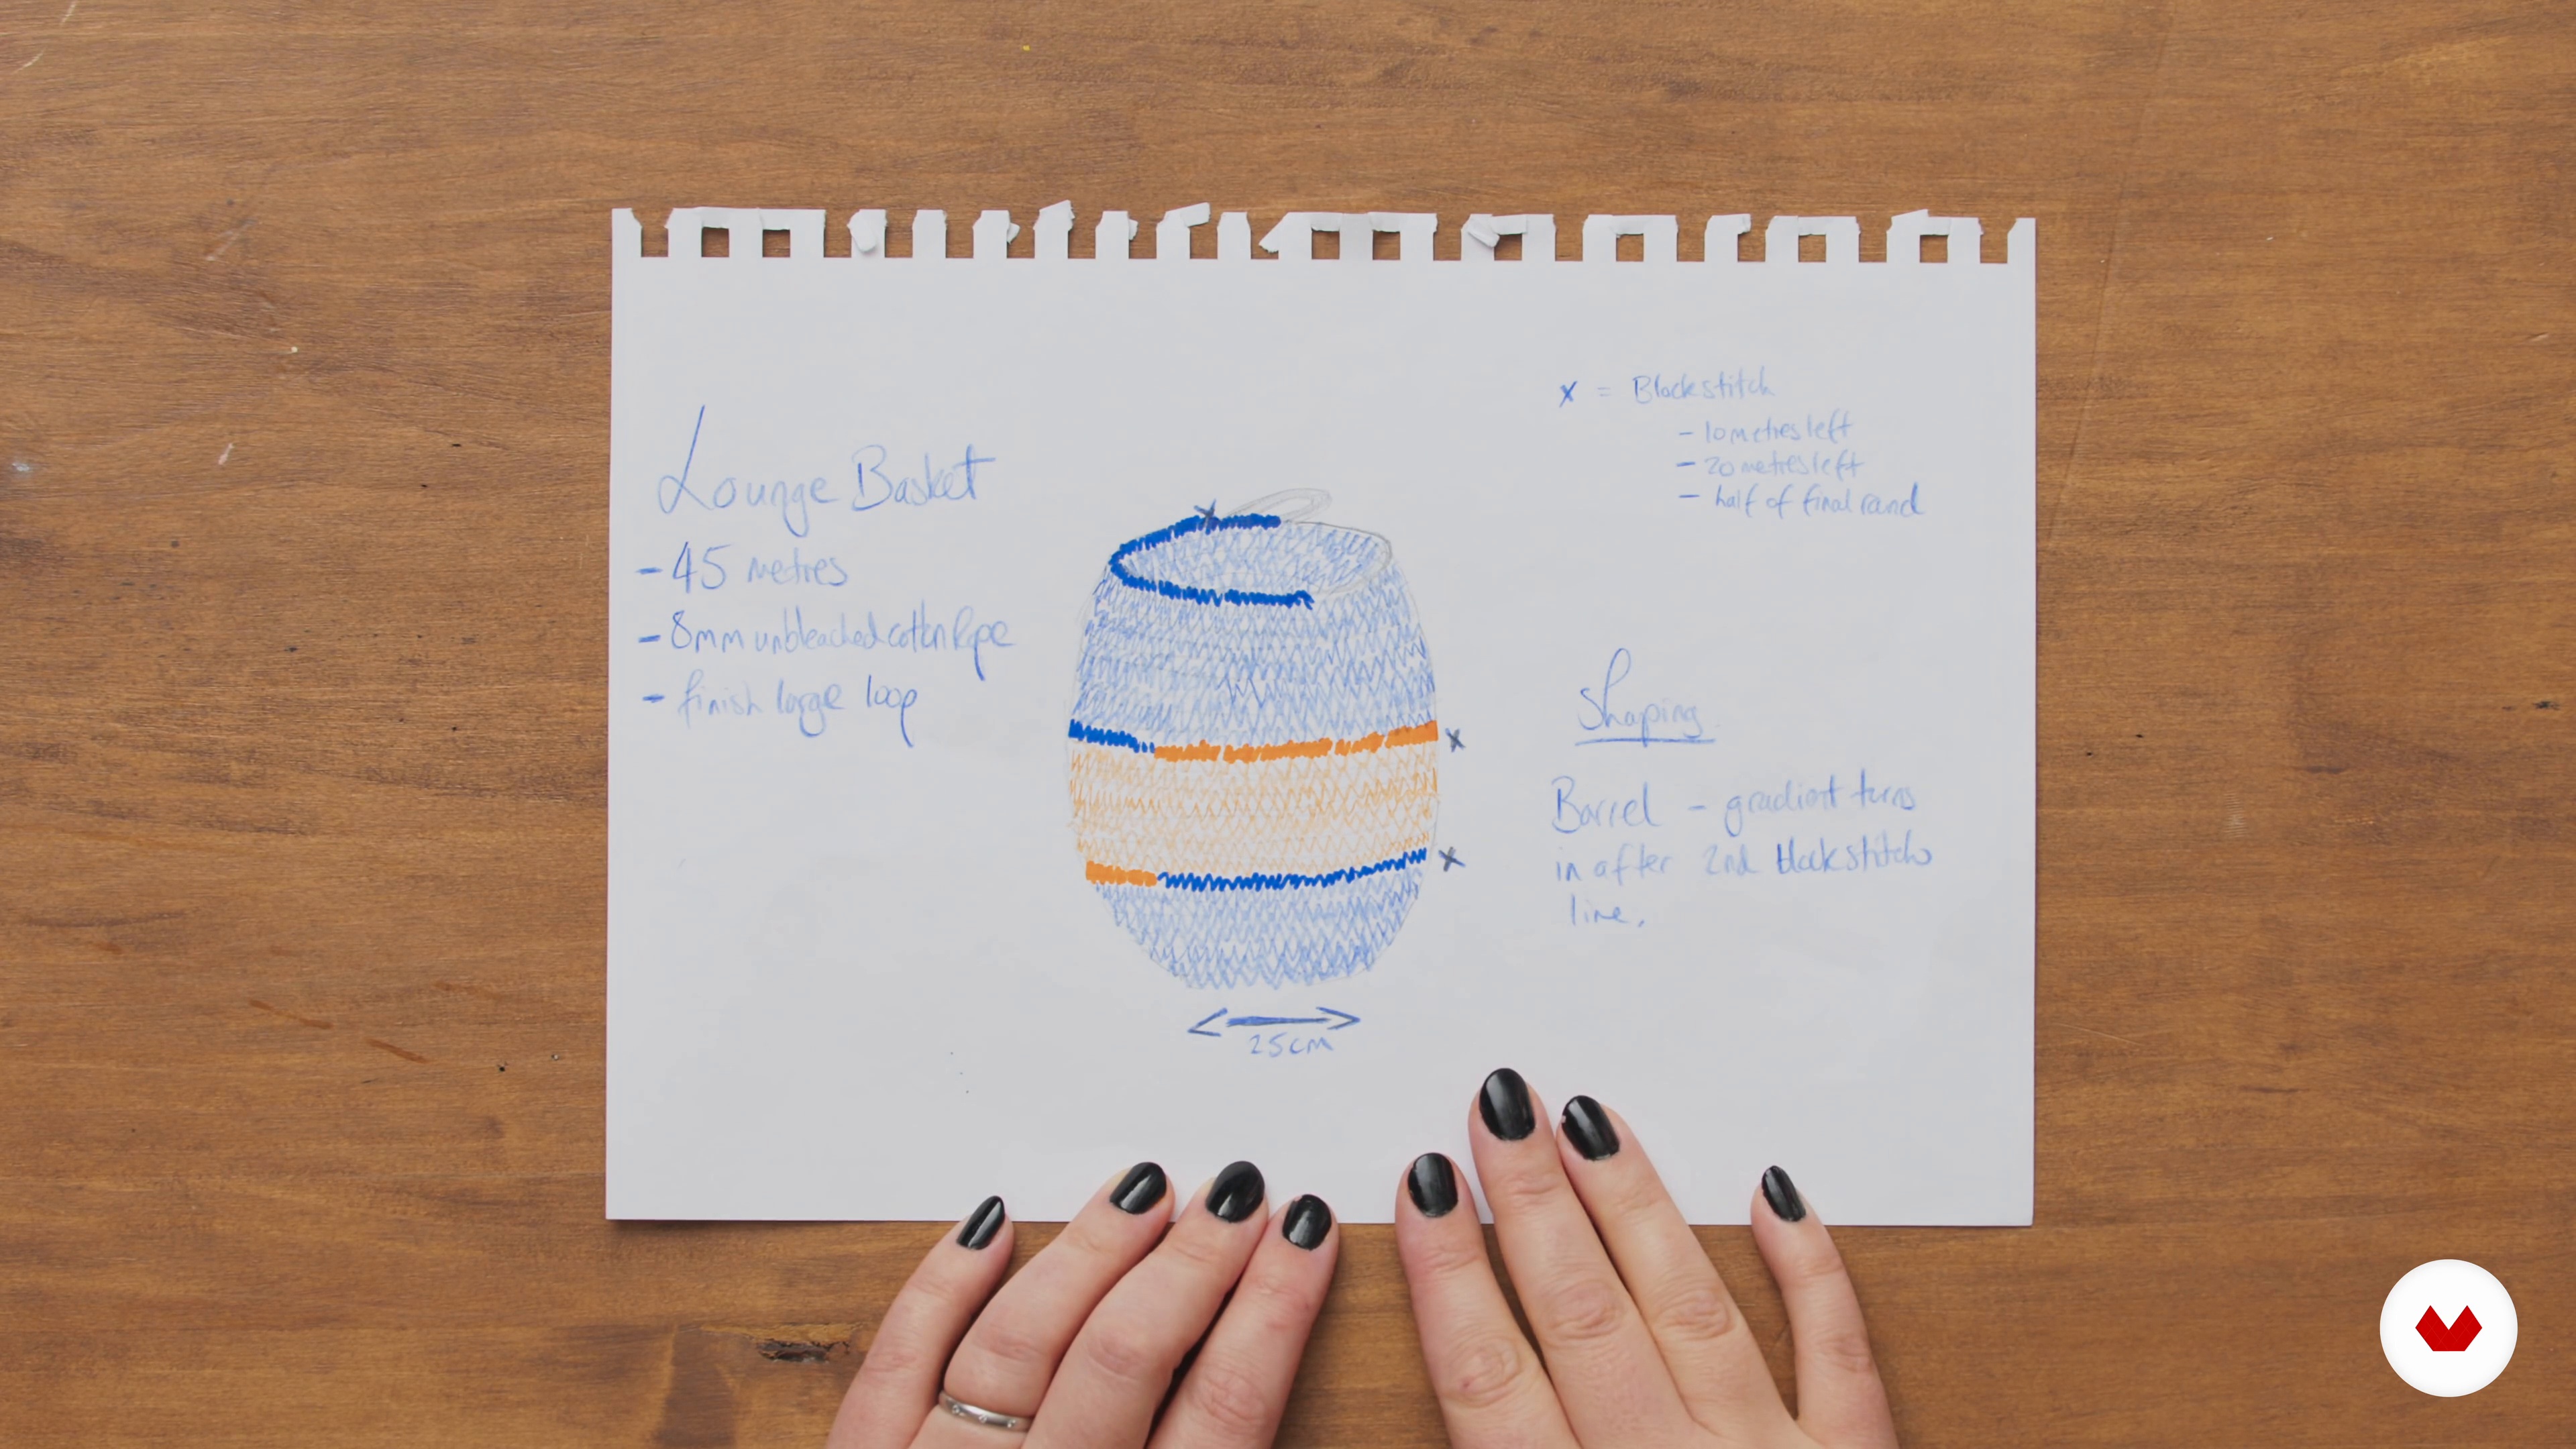 Lounge Basket
- 45 metres
- 8mm unbleached cotton Rope
- finish large loop
x = Block stitch
- 10 metres left
- 20 metres left
- half of final round
x
x
x
25cm
Shaping
Barrel - gradient turns
in after 2nd block stitch
line.